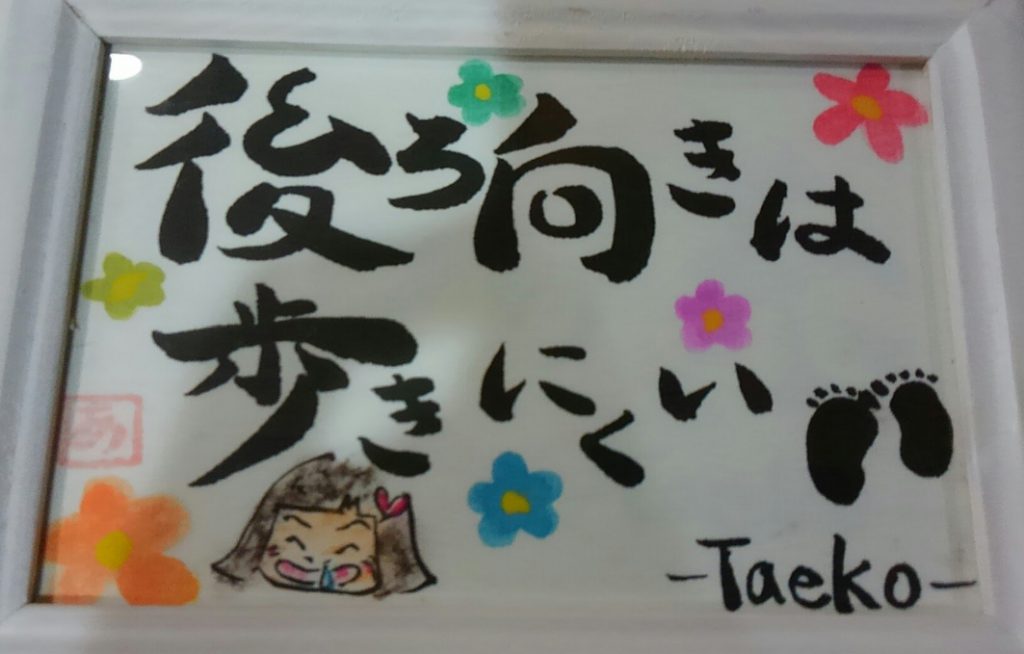 後ろ向きは
歩きにくい
-Taeko-